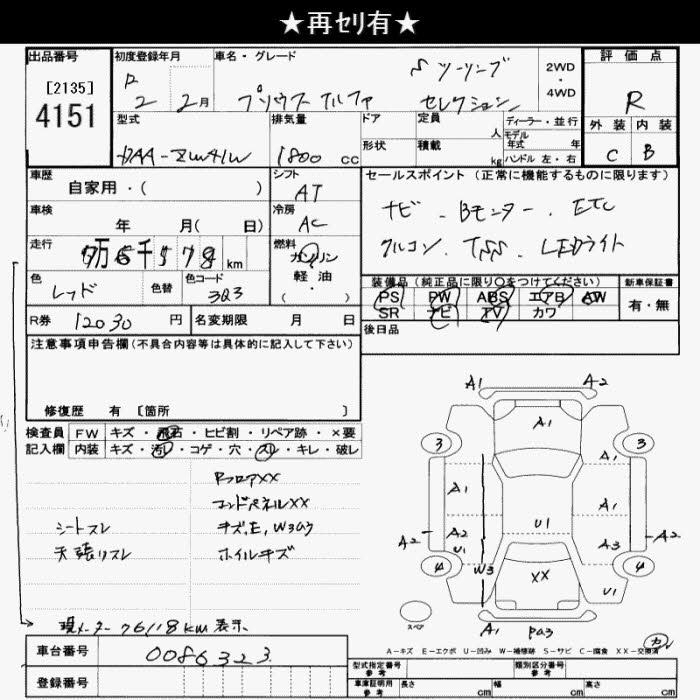 ★再ｾﾘ有★
出品番号
[2135]
4151
初度登録年月
R
2 2月
車名・グレード
Sツーリング
プリウス アルファ セレクション
2WD
・
4WD
評価点
R
外装 内装
C B
型式
DAA-ZVW41W
排気量
1800 cc
ドア
形状
定員
人
積載
kg
ディーラー・並行
モデル
年式 年
ハンドル 左・右
車歴
自家用・( )
シフト
AT
車検
年 月( 日)
冷房
AC
走行
7万6千578 km
燃料
ガソリン
軽油・
( )
色
レッド
色替
色コード
3Q3
R券 12030 円
名変期限 月 日
セールスポイント (正常に機能するものに限ります)
ナビ . Bモニター . ETC
クルコン . TSS . LEDライト
装備品 (純正品に限り○をつけてください)
PS PW ABS エアB AW
SR ナビ TV カワ
新車保証書
有・無
後日品
注意事項申告欄(不具合内容等は具体的に記入して下さい)
修復歴 有 [箇所 ]
検査員
記入欄
FW キズ・飛石・ヒビ割・リペア跡・×要
内装 キズ・汚レ・コゲ・穴・スレ・キレ・破レ
RフロアXX
エンドパネルXX
シートスレ
キズ,E,W3あり
天張りスレ
ホイルキズ
現メーター 76118km 表示
A1 A2
3 A1 3
A1 A1 A1
A2 A2 U1 U1 A3 A2
4 W3 XX U1 4
スペア
A1 pa3
カワ
A-キズ E-エクボ U-凹み W-補修跡 S-サビ C-腐食 XX-交換済
車台番号 0086323
登録番号
型式指定番号
参考
類別区分番号
参考
車庫証明用
参考
長さ cm 幅 cm 高さ cm